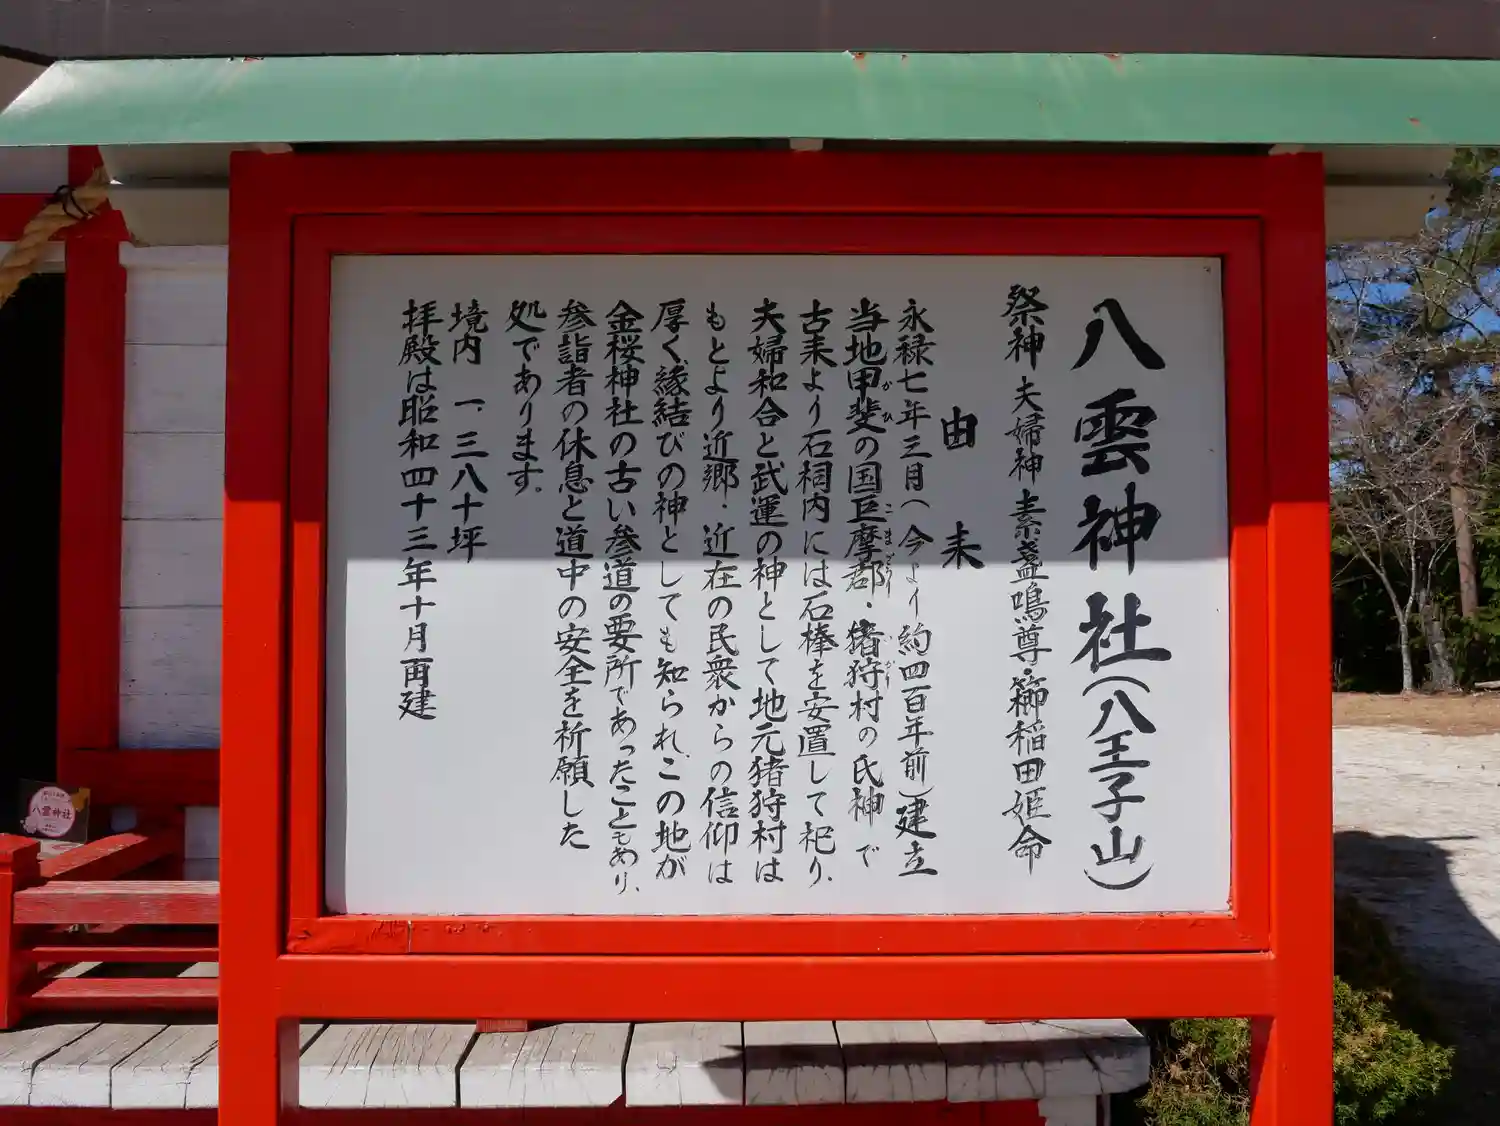 八雲神社(八王子山)
祭神 夫婦神 素盞鳴尊・櫛稲田姫命
由来
永禄七年三月(今より約四百年前)建立
当地甲斐の国巨摩郡・猪狩村の氏神で
がひ こまごうり いかり
古来より石祠内には石棒を安置して祀り、
夫婦和合と武運の神として地元猪狩村は
もとより近郷・近在の民衆からの信仰は
厚く、縁結びの神としても知られ、この地が
金桜神社の古い参道の要所であったこともあり、
参詣者の休息と道中の安全を祈願した
処であります。
境内 一、三八十坪
拝殿は昭和四十三年十月再建
八雲神社